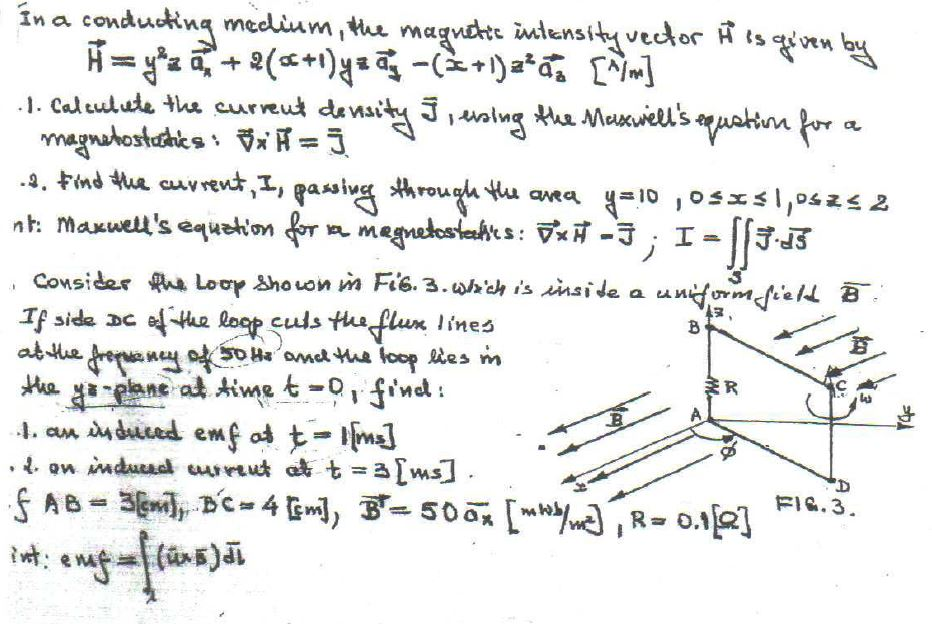 In a conducting medium, the magnetic intensity vector H⃗ is given by
H⃗ = y²z a⃗ₓ + 2(x+1)yz a⃗ᵧ - (x+1)z² a⃗_z [A/m]
.1. Calculate the current density J⃗, using the Maxwell's equation for a
magnetostatics: ∇⃗×H⃗ = J⃗
.2. Find the current, I, passing through the area y=10, 0≤x≤1, 0≤z≤2
nt: Maxwell's equation for a magnetostatics: ∇⃗×H⃗ = J⃗ ; I = ∬ J⃗·dS⃗
S
. Consider the loop shown in FIG. 3. which is inside a uniform field B̅.
If side DC of the loop cuts the flux lines
at the frequency of 50 Hz and the loop lies in
the yz-plane at time t = 0, find:
.1. an induced emf at t = 1[ms]
.2. an induced current at t = 3 [ms].
f AB = 3[cm], BC = 4 [cm], B⃗ = 50 a̅ₓ [mWb/m²], R = 0.1[Ω]
int: emf = ∫ (u̅×B̅) dl̅
l
z
B
B̅
R
C
ω
y
A
B̅
ϕ
x
D
FIG. 3.